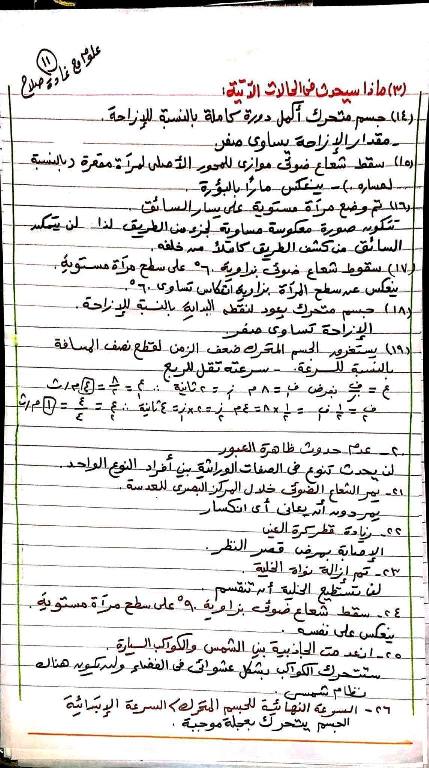 علوم مع غادة صلاح
١١
(٣) ماذا سيحدث فى الحالات الآتية:
(١٤) جسم متحرك أكمل دورة كاملة بالنسبة للإزاحة.
- مقدار الإزاحة يساوى صفر
(١٥) سقط شعاع ضوئى موازى للمحور الأصلى لمرآة مقعرة (بالنسبة
لمساره) - ينعكس مارًا بالبؤرة
(١٦) تم وضع مرآة مستوية على يسار السائق.
تتكون صورة معكوسة مساوية لجزء من الطريق لذا لن يتمكن
السائق من كشف الطريق كاملاً من خلفه.
(١٧) سقوط شعاع ضوئى بزاوية ٦٠° على سطح مرآة مستوية.
ينعكس عن سطح المرآة بزاوية انعكاس تساوى ٦٠°.
(١٨) جسم متحرك يعود لنقطة البداية بالنسبة للإزاحة.
الإزاحة تساوى صفر.
(١٩) يستغرق الجسم المتحرك ضعف الزمن لقطع نصف المسافة
بالنسبة للسرعة. - سرعته تقل للربع
ع = ف/ز نفرض ف١ = ٨ م ز١ = ٢ ثانية ∴ ع١ = ٨/٢ = ٤ م/ث
ف٢ = ١/٢ ف١ = ١/٢ × ٨ = ٤ م ز٢ = ٢ × ز١ = ٤ ثانية ∴ ع٢ = ٤/٤ = ١ م/ث
٢٠- عدم حدوث ظاهرة العبور
لن يحدث تنوع فى الصفات الوراثية بين أفراد النوع الواحد.
٢١- يمر الشعاع الضوئى خلال المركز البصرى للعدسة.
يمر دون أن يعانى أى انكسار
٢٢- زيادة قطر كرة العين
الإصابة بمرض قصر النظر.
٢٣- تم إزالة نواة الخلية.
لن تستطيع الخلية أن تنقسم.
٢٤- سقط شعاع ضوئى بزاوية ٩٠° على سطح مرآة مستوية.
ينعكس على نفسه.
٢٥- انعدمت الجاذبية بين الشمس والكواكب السيارة.
ستتحرك الكواكب بشكل عشوائى فى الفضاء ولن يكون هناك
نظام شمسى.
٢٦- السرعة النهائية للجسم المتحرك > السرعة الإبتدائية
الجسم يتحرك بعجلة موجبة.